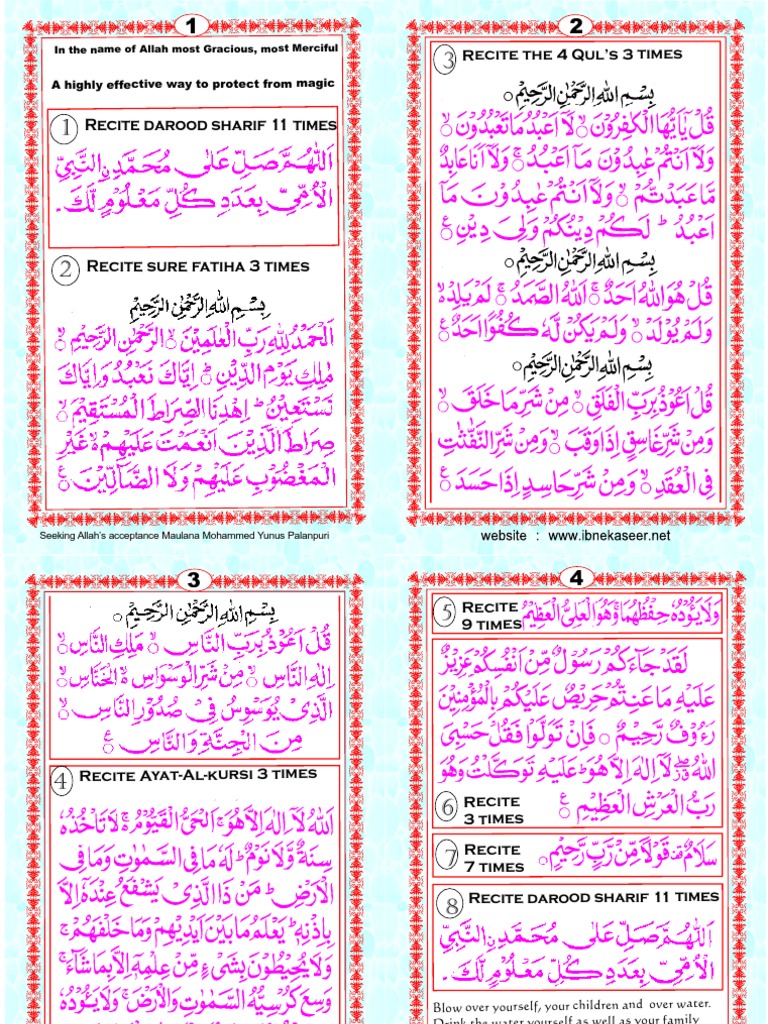 1
In the name of Allah most Gracious, most Merciful
A highly effective way to protect from magic
1 RECITE DAROOD SHARIF 11 TIMES
اَللّٰهُمَّ صَلِّ عَلٰى مُحَمَّدِنِ النَّبِيِّ
الْاُمِّيِّ بِعَدَدِ كُلِّ مَعْلُوْمٍ لَّكَ۔
2 RECITE SURE FATIHA 3 TIMES
بِسْمِ اللهِ الرَّحْمٰنِ الرَّحِيْمِ
اَلْحَمْدُ لِلّٰهِ رَبِّ الْعٰلَمِيْنَ ۙ الرَّحْمٰنِ الرَّحِيْمِ ۙ
مٰلِكِ يَوْمِ الدِّيْنِ ؕ اِيَّاكَ نَعْبُدُ وَاِيَّاكَ
نَسْتَعِيْنُ ؕ اِهْدِنَا الصِّرَاطَ الْمُسْتَقِيْمَ ۙ
صِرَاطَ الَّذِيْنَ اَنْعَمْتَ عَلَيْهِمْ ۙ غَيْرِ
الْمَغْضُوْبِ عَلَيْهِمْ وَلَا الضَّآلِّيْنَ
Seeking Allah's acceptance Maulana Mohammed Yunus Palanpuri
2
3 RECITE THE 4 QUL'S 3 TIMES
بِسْمِ اللهِ الرَّحْمٰنِ الرَّحِيْمِ
قُلْ يٰٓاَيُّهَا الْكٰفِرُوْنَ ۙ لَآ اَعْبُدُ مَا تَعْبُدُوْنَ ۙ
وَلَآ اَنْتُمْ عٰبِدُوْنَ مَآ اَعْبُدُ ۚ وَلَآ اَنَا عَابِدٌ
مَّا عَبَدْتُّمْ ۙ وَلَآ اَنْتُمْ عٰبِدُوْنَ مَآ
اَعْبُدُ ؕ لَكُمْ دِيْنُكُمْ وَلِيَ دِيْنِ
بِسْمِ اللهِ الرَّحْمٰنِ الرَّحِيْمِ
قُلْ هُوَ اللهُ اَحَدٌ ۚ اَللهُ الصَّمَدُ ۚ لَمْ يَلِدْ ۙ
وَلَمْ يُوْلَدْ ۙ وَلَمْ يَكُنْ لَّهٗ كُفُوًا اَحَدٌ
بِسْمِ اللهِ الرَّحْمٰنِ الرَّحِيْمِ
قُلْ اَعُوْذُ بِرَبِّ الْفَلَقِ ۙ مِنْ شَرِّ مَا خَلَقَ ۙ
وَمِنْ شَرِّ غَاسِقٍ اِذَا وَقَبَ ۙ وَمِنْ شَرِّ النَّفّٰثٰتِ
فِي الْعُقَدِ ۙ وَمِنْ شَرِّ حَاسِدٍ اِذَا حَسَدَ
website : www.ibnekaseer.net
3
بِسْمِ اللهِ الرَّحْمٰنِ الرَّحِيْمِ
قُلْ اَعُوْذُ بِرَبِّ النَّاسِ ۙ مَلِكِ النَّاسِ ۙ
اِلٰهِ النَّاسِ ۙ مِنْ شَرِّ الْوَسْوَاسِ ۙ الْخَنَّاسِ ۙ
الَّذِيْ يُوَسْوِسُ فِيْ صُدُوْرِ النَّاسِ ۙ
مِنَ الْجِنَّةِ وَالنَّاسِ
4 RECITE AYAT-AL-KURSI 3 TIMES
اَللهُ لَآ اِلٰهَ اِلَّا هُوَ ۚ اَلْحَيُّ الْقَيُّوْمُ ۚ لَا تَاْخُذُهٗ
سِنَةٌ وَّلَا نَوْمٌ ؕ لَهٗ مَا فِي السَّمٰوٰتِ وَمَا فِي
الْاَرْضِ ؕ مَنْ ذَا الَّذِيْ يَشْفَعُ عِنْدَهٗٓ اِلَّا
بِاِذْنِهٖ ؕ يَعْلَمُ مَا بَيْنَ اَيْدِيْهِمْ وَمَا خَلْفَهُمْ ۚ
وَلَا يُحِيْطُوْنَ بِشَيْءٍ مِّنْ عِلْمِهٖٓ اِلَّا بِمَا شَآءَ ۚ
وَسِعَ كُرْسِيُّهُ السَّمٰوٰتِ وَالْاَرْضَ ۚ وَلَا يَـُٔوْدُهٗ
4
5 RECITE 9 TIMES وَلَا يَـُٔوْدُهٗ حِفْظُهُمَا ۚ وَهُوَ الْعَلِيُّ الْعَظِيْمُ
لَقَدْ جَآءَكُمْ رَسُوْلٌ مِّنْ اَنْفُسِكُمْ عَزِيْزٌ
عَلَيْهِ مَا عَنِتُّمْ حَرِيْصٌ عَلَيْكُمْ بِالْمُؤْمِنِيْنَ
رَءُوْفٌ رَّحِيْمٌ ۞ فَاِنْ تَوَلَّوْا فَقُلْ حَسْبِيَ
اللهُ ۖ لَآ اِلٰهَ اِلَّا هُوَ ؕ عَلَيْهِ تَوَكَّلْتُ وَهُوَ
رَبُّ الْعَرْشِ الْعَظِيْمِ
6 RECITE
3 TIMES
7 RECITE
7 TIMES
سَلٰمٌ قَوْلًا مِّنْ رَّبٍّ رَّحِيْمٍ
8 RECITE DAROOD SHARIF 11 TIMES
اَللّٰهُمَّ صَلِّ عَلٰى مُحَمَّدِنِ النَّبِيِّ
الْاُمِّيِّ بِعَدَدِ كُلِّ مَعْلُوْمٍ لَّكَ۔
Blow over yourself, your children and over water.
Drink the water yourself as well as your family